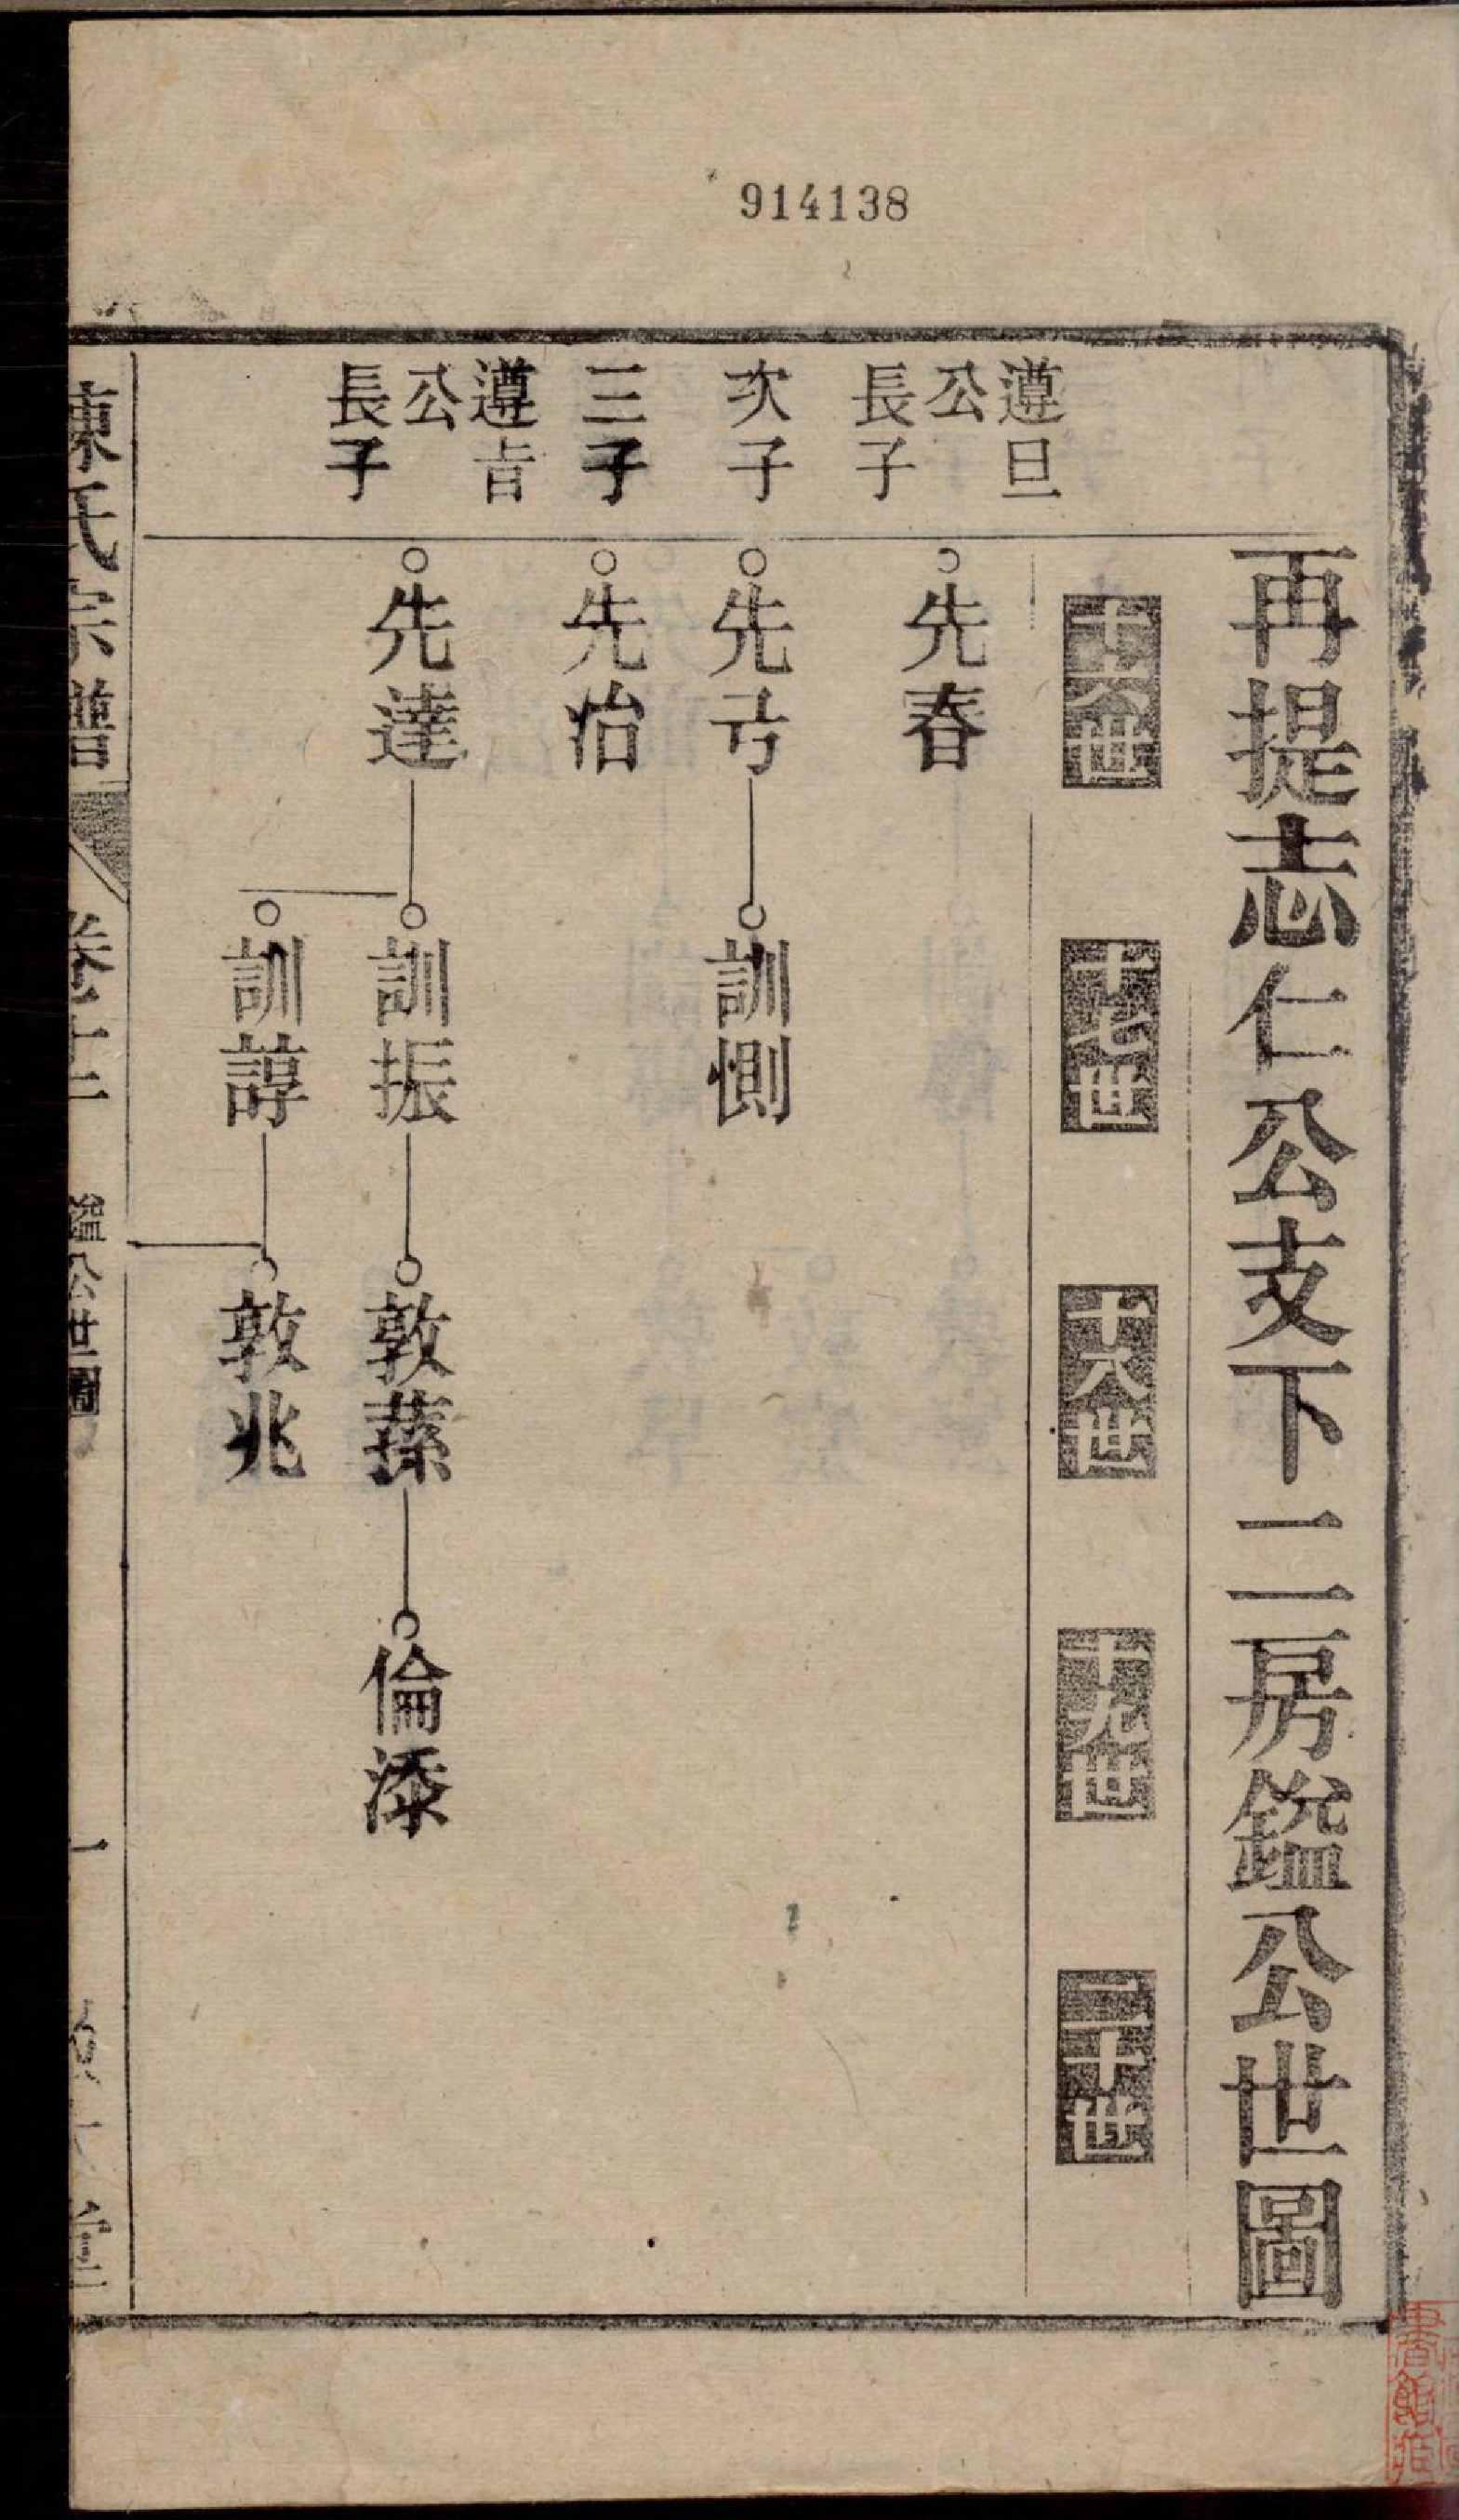 914138
再提志仁公支下二房鑑公世圖
十六世
十七世
十八世
十九世
二十世
遵旦
公
長子
先春
次子
先㝍
訓惻
三子
先治
遵㫖
公
長子
先達
訓振
敦蓀
倫漆
訓諄
敦兆
陳氏宗譜
卷十二
鑑公世圖
一